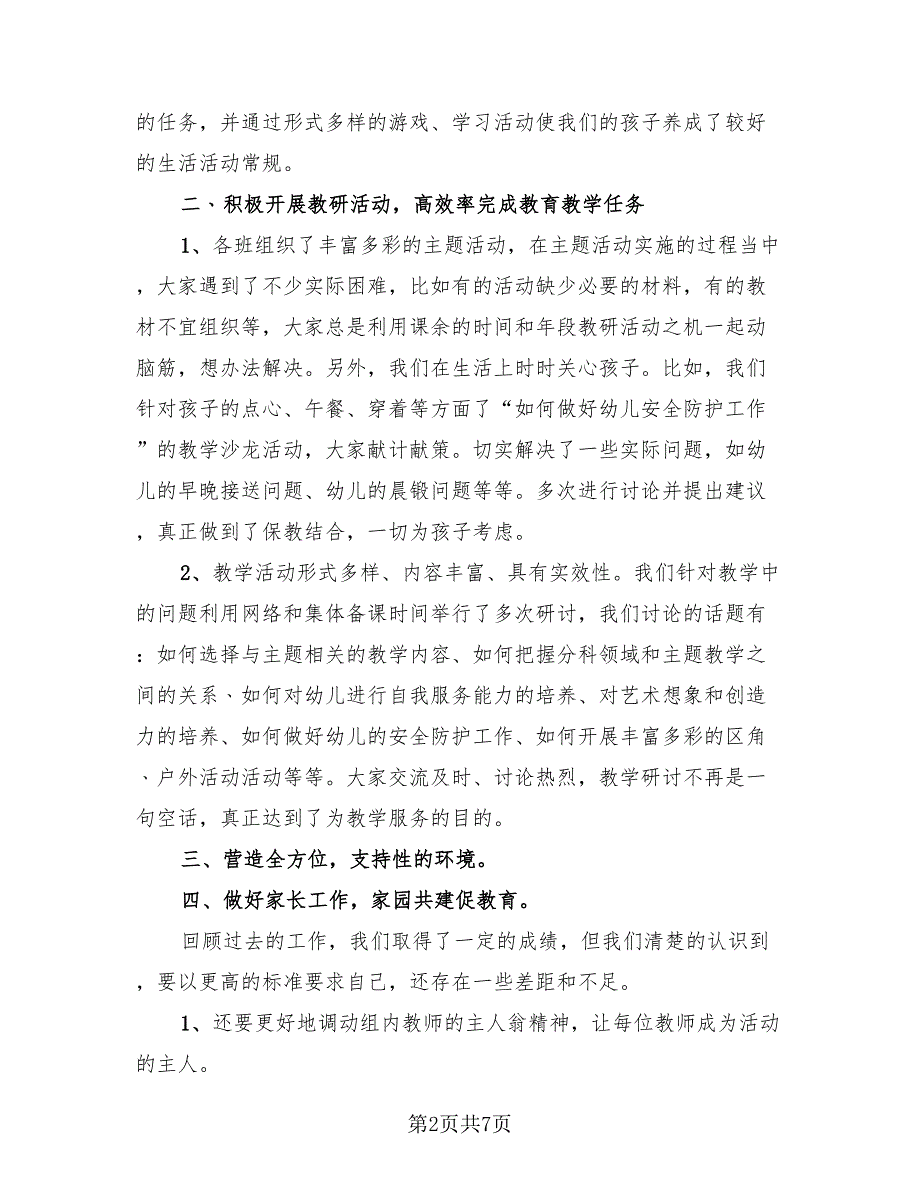 的任务，并通过形式多样的游戏、学习活动使我们的孩子养成了较好
的生活活动常规。
二、积极开展教研活动，高效率完成教育教学任务
1、各班组织了丰富多彩的主题活动，在主题活动实施的过程当中
，大家遇到了不少实际困难，比如有的活动缺少必要的材料，有的教
材不宜组织等，大家总是利用课余的时间和年段教研活动之机一起动
脑筋，想办法解决。另外，我们在生活上时时关心孩子。比如，我们
针对孩子的点心、午餐、穿着等方面了“如何做好幼儿安全防护工作
”的教学沙龙活动，大家献计献策。切实解决了一些实际问题，如幼
儿的早晚接送问题、幼儿的晨锻问题等等。多次进行讨论并提出建议
，真正做到了保教结合，一切为孩子考虑。
2、教学活动形式多样、内容丰富、具有实效性。我们针对教学中
的问题利用网络和集体备课时间举行了多次研讨，我们讨论的话题有
：如何选择与主题相关的教学内容、如何把握分科领域和主题教学之
间的关系、如何对幼儿进行自我服务能力的培养、对艺术想象和创造
力的培养、如何做好幼儿的安全防护工作、如何开展丰富多彩的区角
、户外活动活动等等。大家交流及时、讨论热烈，教学研讨不再是一
句空话，真正达到了为教学服务的目的。
三、营造全方位，支持性的环境。
四、做好家长工作，家园共建促教育。
回顾过去的工作，我们取得了一定的成绩，但我们清楚的认识到
，要以更高的标准要求自己，还存在一些差距和不足。
1、还要更好地调动组内教师的主人翁精神，让每位教师成为活动
的主人。
第2页共7页